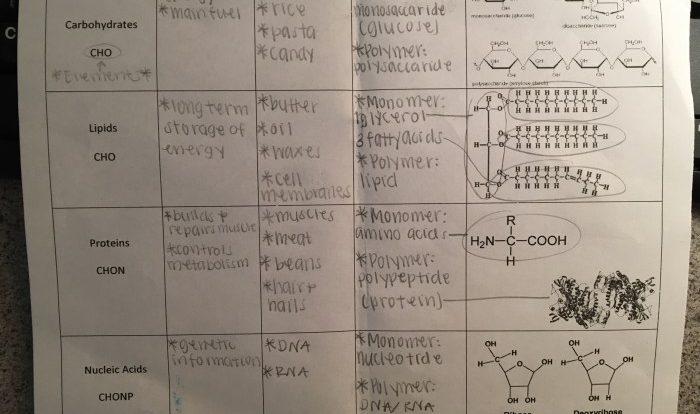 C
Carbohydrates
CHO
*Elements*
*main fuel
*rice
*pasta
*candy
monosaccaride
(glucose)
*Polymer:
polysaccaride
monosaccharide (glucose)
disaccharide (sucrose)
HOCH₂
OH
CH₂OH CH₂OH CH₂OH CH₂OH
OH OH OH OH
polysaccharide (amylose starch)
Lipids
CHO
*long term
storage of
energy
*butter
*oil
*waxes
*cell
membranes
*Monomer:
1 glycerol
3 fatty acids
*Polymer:
lipid
Proteins
CHON
*builds +
repairs muscle
*controls
metabolism
*muscles
*meat
*beans
*hair +
nails
*Monomer:
amino acids
*Polymer:
polypeptide
(protein)
R
H₂N-C-COOH
H
Nucleic Acids
CHONP
*genetic
information
*DNA
*RNA
*Monomer:
nucleotide
*Polymer:
DNA/RNA
OH OH
H H H H
O OH O OH
OH OH OH H
Ribose Deoxyribose